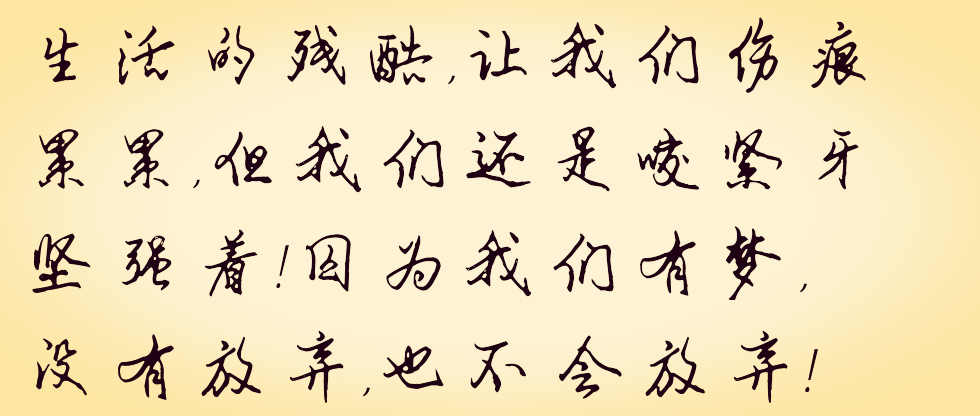 生活的残酷,让我们伤痕
累累,但我们还是咬紧牙
坚强着!因为我们有梦,
没有放弃,也不会放弃!